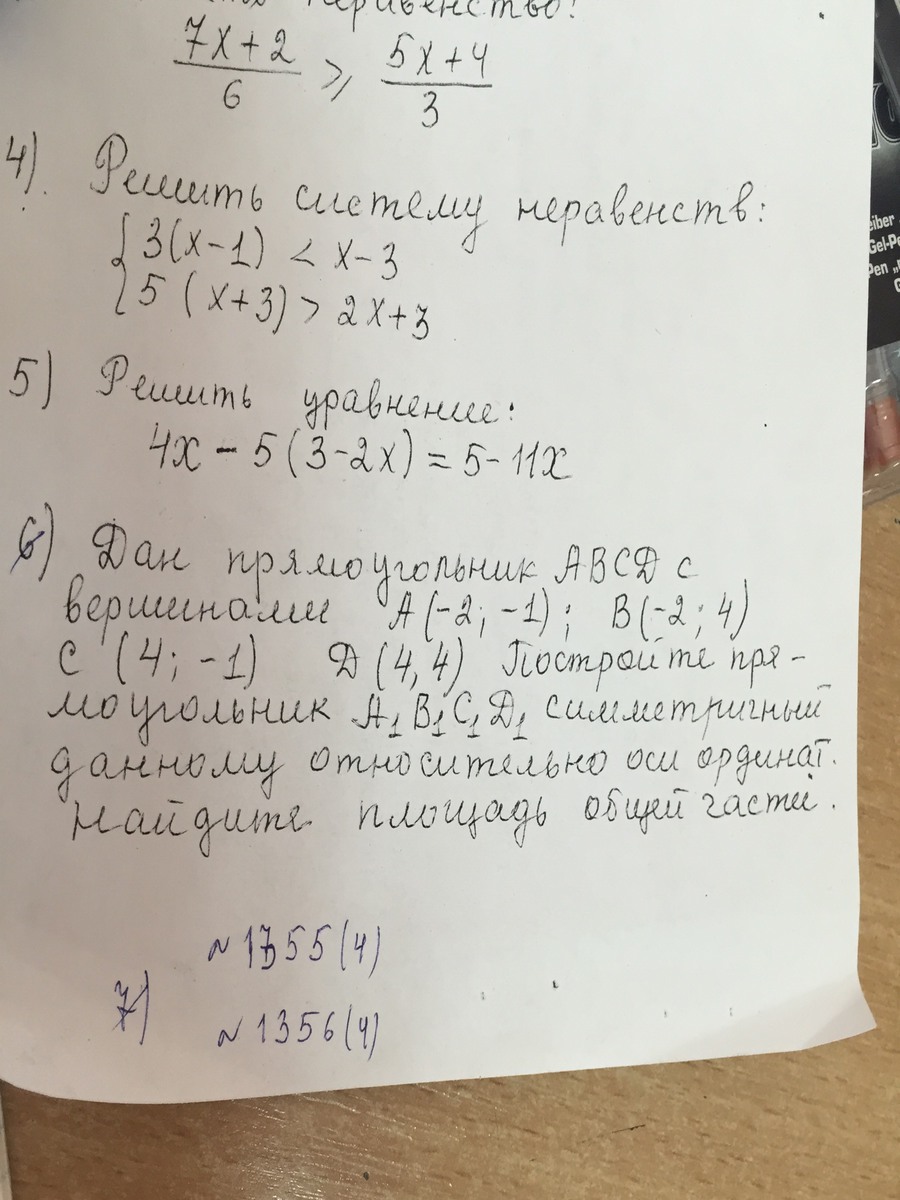 неравенство:
7x+2 / 6 ⩾ 5x+4 / 3
4). Решить систему неравенств:
{ 3(x-1) < x-3
{ 5 (x+3) > 2x+3
5) Решить уравнение:
4x - 5(3-2x) = 5-11x
6) Дан прямоугольник ABCD с
вершинами A(-2; -1); B(-2; 4)
C (4; -1) D(4,4) Постройте пря-
моугольник A₁B₁C₁D₁ симметричный
данному относительно оси ординат.
Найдите площадь общей части.
~ 1355(4)
7)
~ 1356(4)
Gel-Pe
Pen